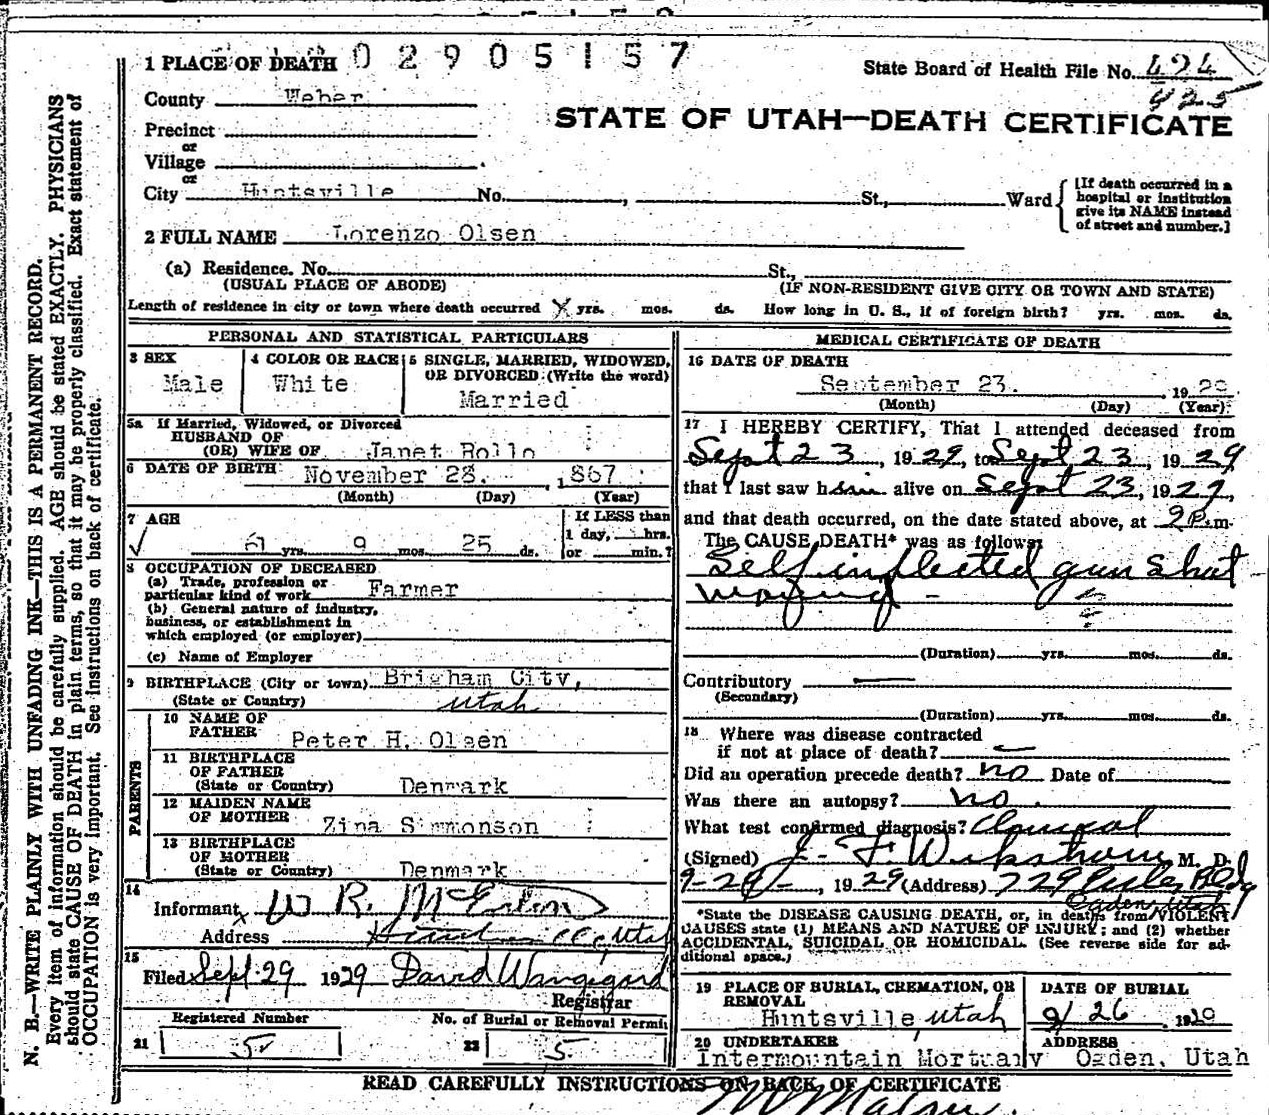 1 PLACE OF DEATH 02905157
State Board of Health File No. 424
425
County Weber
STATE OF UTAH—DEATH CERTIFICATE
Precinct
or
Village
or
City Huntsville No. , St., Ward
[If death occurred in a hospital or institution give its NAME instead of street and number.]
2 FULL NAME Lorenzo Olsen
(a) Residence. No. St.,
(USUAL PLACE OF ABODE) (IF NON-RESIDENT GIVE CITY OR TOWN AND STATE)
Length of residence in city or town where death occurred X yrs. mos. ds. How long in U. S., if of foreign birth? yrs. mos. ds.
PERSONAL AND STATISTICAL PARTICULARS
3 SEX
Male
4 COLOR OR RACE
White
5 SINGLE, MARRIED, WIDOWED,
OR DIVORCED (Write the word)
Married
5a If Married, Widowed, or Divorced
HUSBAND OF
(OR) WIFE OF Janet Rollo
6 DATE OF BIRTH November 28. , 1867
(Month) (Day) (Year)
7 AGE
61 yrs. 9 mos. 25 ds.
If LESS than
1 day, hrs.
or min.?
8 OCCUPATION OF DECEASED
(a) Trade, profession or
particular kind of work Farmer
(b) General nature of industry,
business, or establishment in
which employed (or employer)
(c) Name of Employer
9 BIRTHPLACE (City or town) Brigham City,
(State or Country) Utah
PARENTS
10 NAME OF
FATHER Peter H. Olsen
11 BIRTHPLACE
OF FATHER
(State or Country) Denmark
12 MAIDEN NAME
OF MOTHER Zina Simmonson
13 BIRTHPLACE
OF MOTHER
(State or Country) Denmark
14
Informant W R. McEntire
Address Huntsville, Utah
15
Filed Sept. 29 1929 David Wangsgard
Registrar
Registered Number No. of Burial or Removal Permit
21 5 22 5
MEDICAL CERTIFICATE OF DEATH
16 DATE OF DEATH
September 23. , 1929
(Month) (Day) (Year)
17 I HEREBY CERTIFY, That I attended deceased from
Sept 23, 1929, to Sept 23, 1929
that I last saw him alive on Sept 23, 1929,
and that death occurred, on the date stated above, at 9 P.m.
The CAUSE DEATH* was as follows:
Self inflected gun shot
(Duration) yrs. mos. ds.
Contributory
(Secondary)
(Duration) yrs. mos. ds.
18 Where was disease contracted
if not at place of death?
Did an operation precede death? no Date of
Was there an autopsy? no.
What test confirmed diagnosis? Clinical
(Signed) J. F. Wikstrom, M. D.
, 1929 (Address) 729 Eccles Bldg
Ogden, Utah
*State the DISEASE CAUSING DEATH, or, in deaths from VIOLENT
CAUSES state (1) MEANS AND NATURE OF INJURY; and (2) whether
ACCIDENTAL, SUICIDAL OR HOMICIDAL. (See reverse side for ad-
ditional space.)
19 PLACE OF BURIAL, CREMATION, OR
REMOVAL
Huntsville, Utah
DATE OF BURIAL
9/26 , 1929
20 UNDERTAKER
Intermountain Mortuary
ADDRESS
Ogden, Utah
READ CAREFULLY INSTRUCTIONS ON BACK OF CERTIFICATE
N. B.—WRITE PLAINLY WITH UNFADING INK—THIS IS A PERMANENT RECORD.
Every item of information should be carefully supplied. AGE should be stated EXACTLY. PHYSICIANS
should state CAUSE OF DEATH in plain terms, so that it may be properly classified. Exact statement of
OCCUPATION is very important. See instructions on back of certificate.